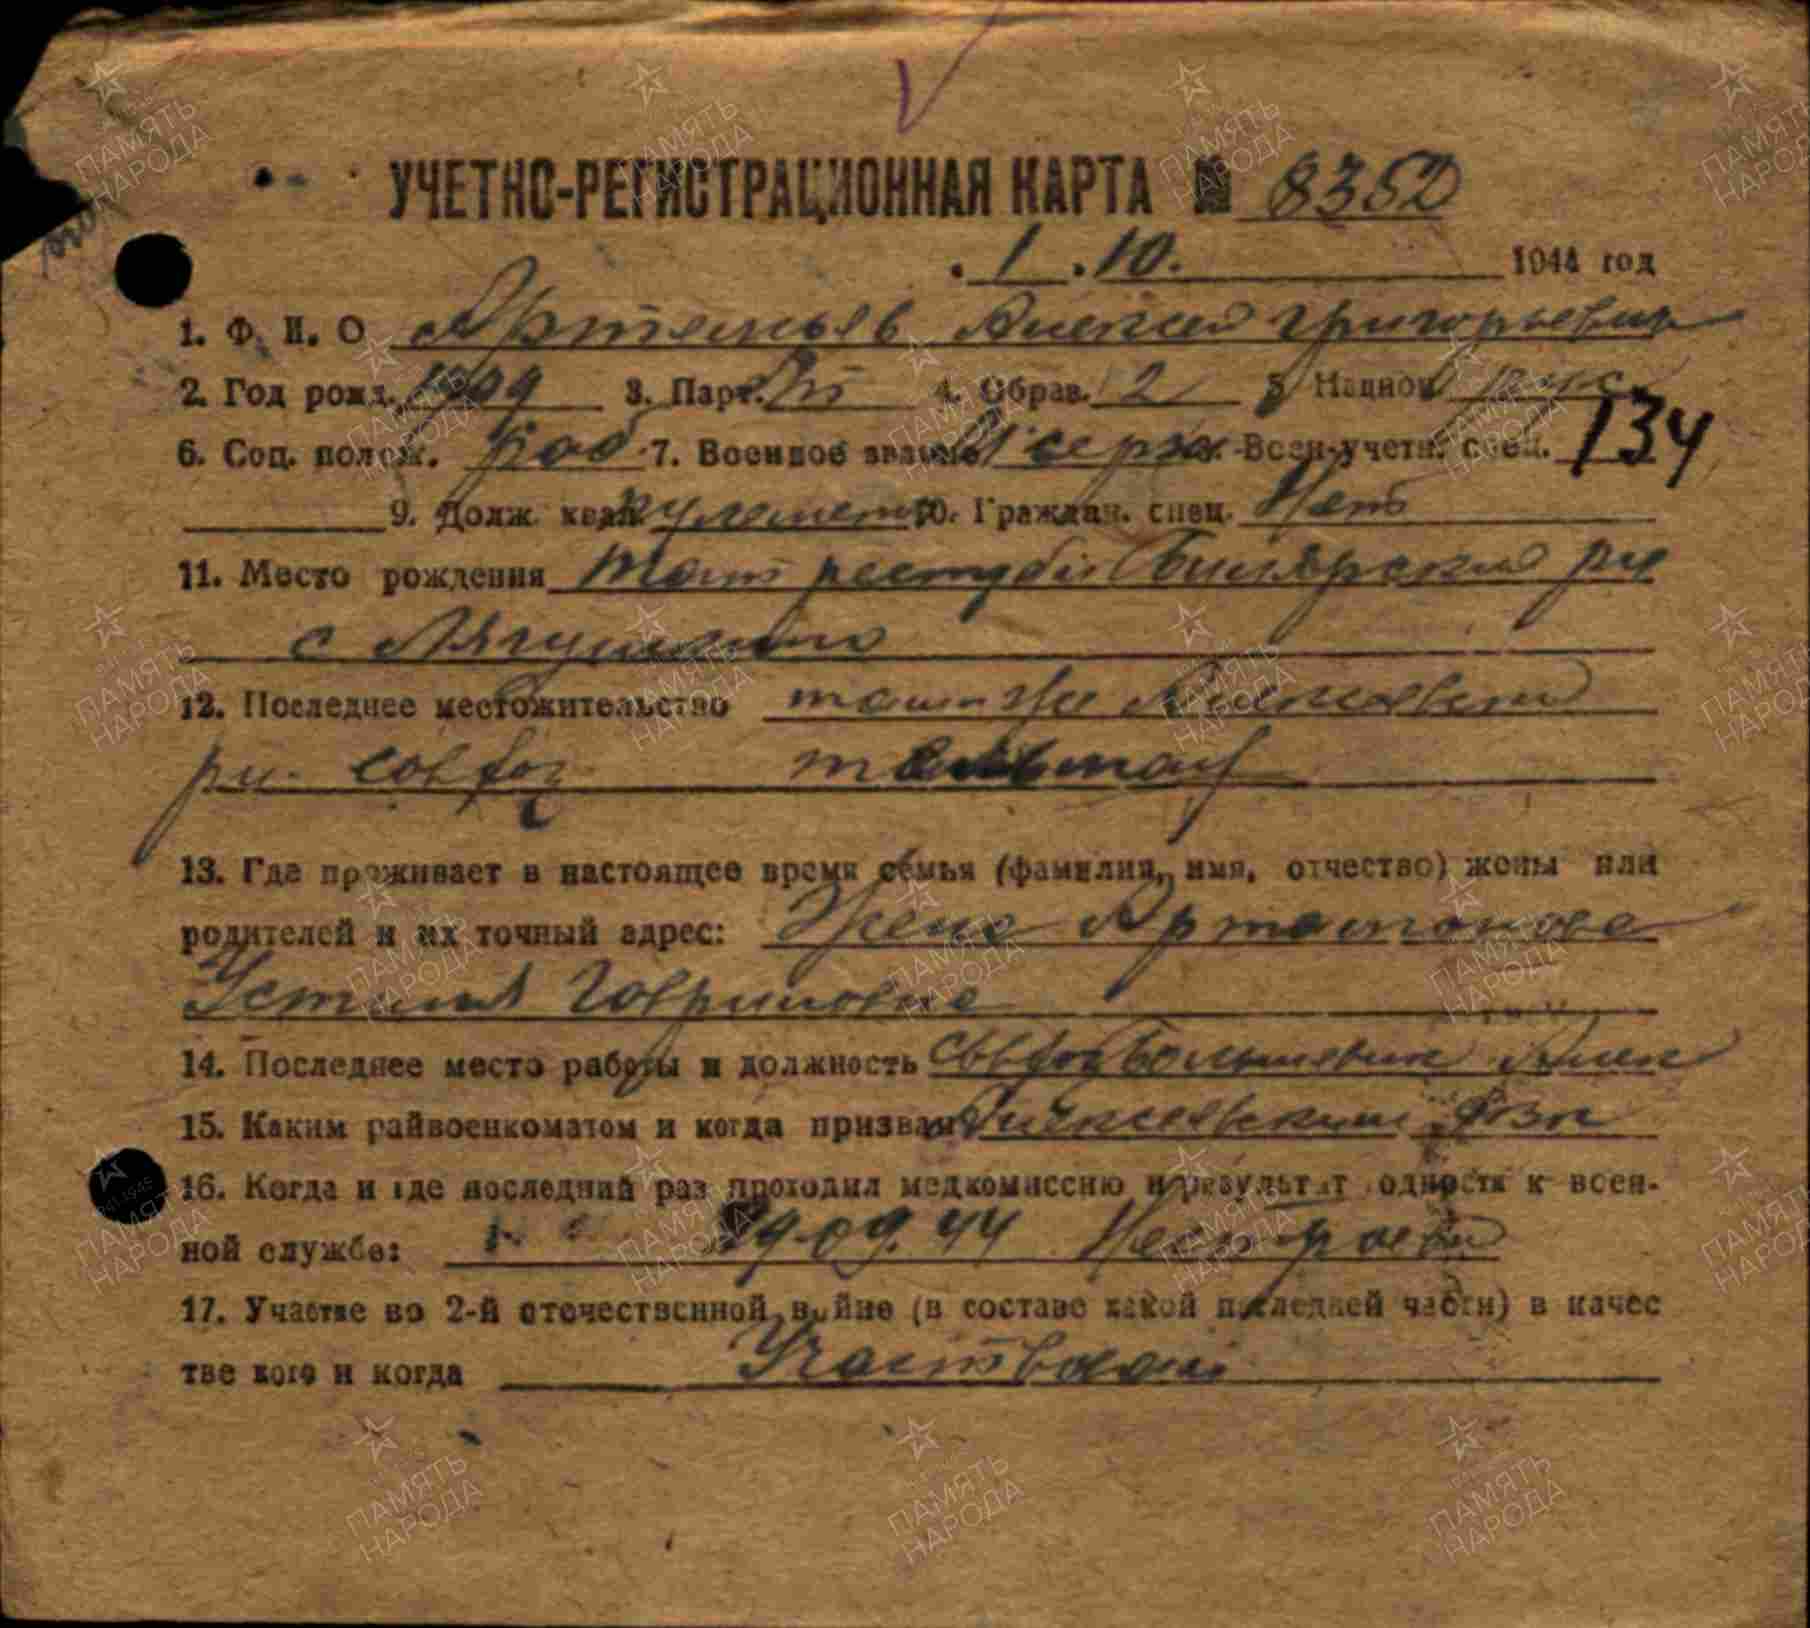 УЧЕТНО-РЕГИСТРАЦИОННАЯ КАРТА № 8352
1.10. 1944 год
1. Ф. И. О Артемьев Алексей Григорьевич
2. Год рожд. 1909 3. Парт. 4. Образ. 2 5 Национ
6. Соц. полож. Раб 7. Военное звание серж. Воен-учетн. спец. 134
9. Долж. квал. пулеметч 10. Граждан. спец. Нет
11. Место рождения Тат республ Билярский рн
с Лягушкино
12. Последнее местожительство
рн. совхоз
13. Где проживает в настоящее время семья (фамилия, имя, отчество) жены или
родителей и их точный адрес: Жена
Устиния Гавриловна
14. Последнее место работы и должность Совхоз Большевик Алек
15. Каким райвоенкоматом и когда призван Алексеевским РВК
16. Когда и где последний раз проходил медкомиссию и результат годности к воен-
ной службе: 29.09.44 Нестроевой
17. Участие во 2-й отечественной войне (в составе какой последней части) в качес
тве кого и когда Участвовал
ПАМЯТЬ НАРОДА